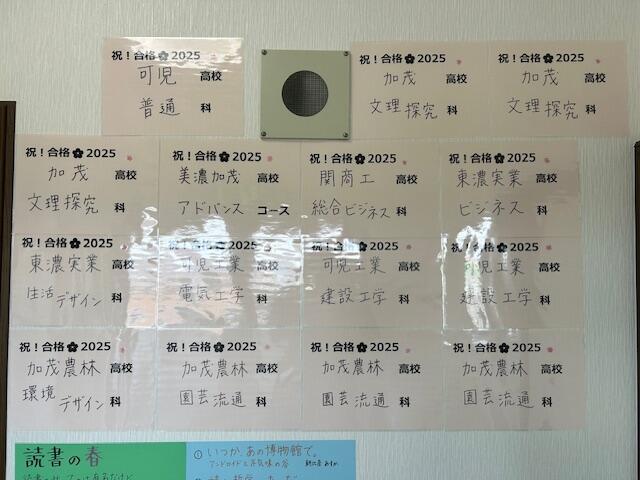 祝！合格 2025
可児 高校
普通 科
祝！合格 2025
加茂 高校
文理探究 科
祝！合格 2025
加茂 高校
文理探究 科
祝！合格 2025
加茂 高校
文理探究 科
祝！合格 2025
美濃加茂 高校
アドバンス コース
祝！合格 2025
関商工 高校
総合ビジネス 科
祝！合格 2025
東濃実業 高校
ビジネス 科
祝！合格 2025
東濃実業 高校
生活デザイン 科
祝！合格 2025
可児工業 高校
電気工学 科
祝！合格 2025
可児工業 高校
建設工学 科
祝！合格 2025
可児工業 高校
建設工学 科
祝！合格 2025
加茂農林 高校
環境デザイン 科
祝！合格 2025
加茂農林 高校
園芸流通 科
祝！合格 2025
加茂農林 高校
園芸流通 科
祝！合格 2025
加茂農林 高校
園芸流通 科
読書の春
①いつか、あの博物館で。
アンドロイドと不気味の谷